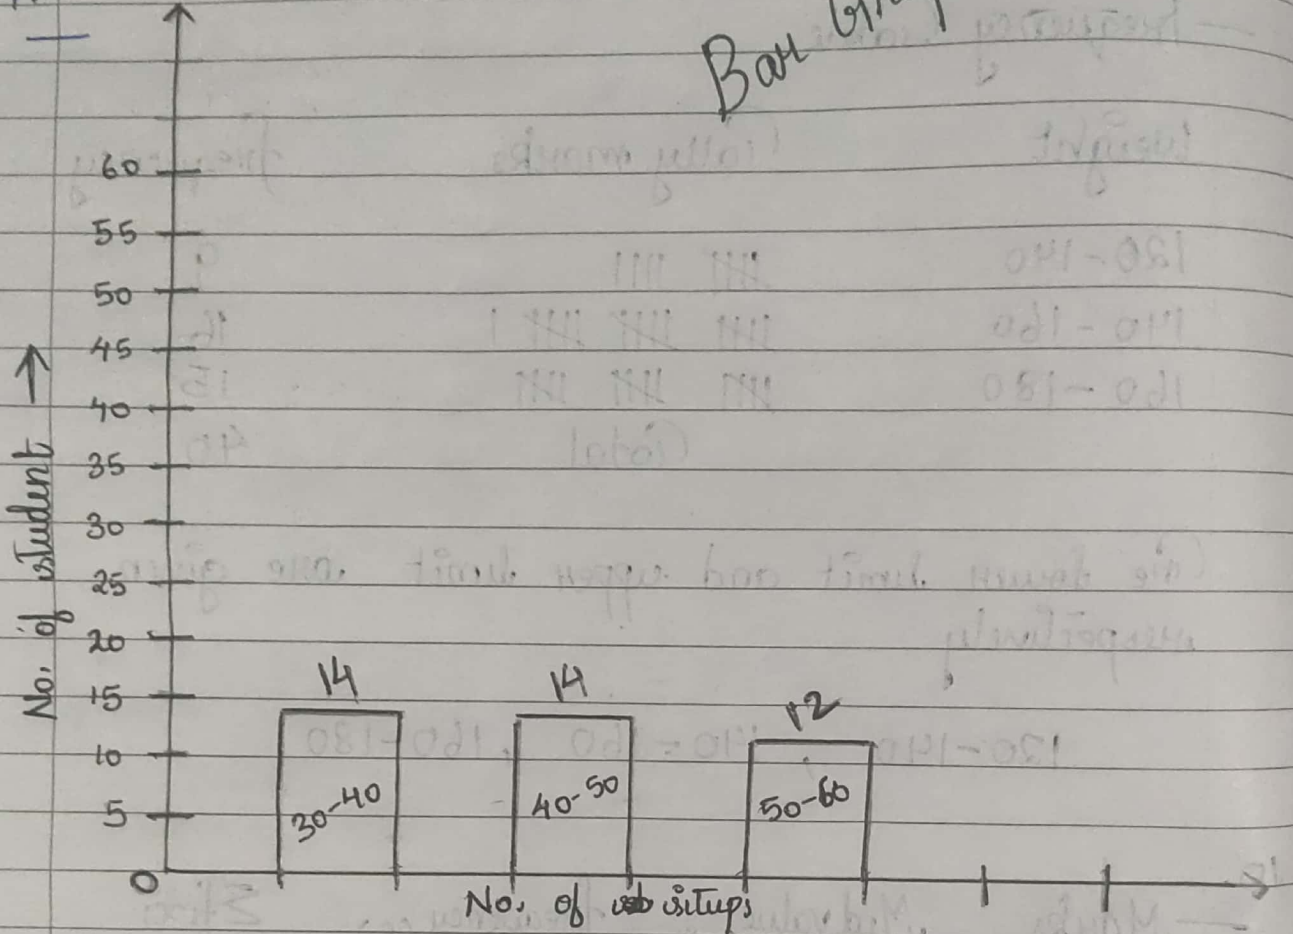 Bar
60
55
50
45
40
35
30
25
20
15
10
5
0
No. of student →
14
14
12
30-40
40-50
50-60
No. of situps